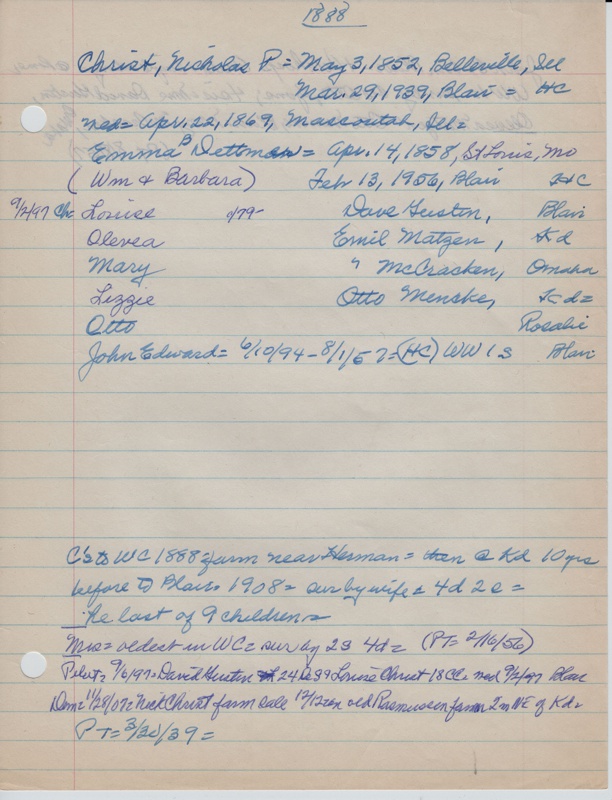 1888
Christ, Nicholas P = May 3, 1852, Belleville, Ill
Mar. 29, 1939, Blair = HC
med = Apr. 22, 1869, Mascoutah, Ill =
Emma B Dettman = Apr. 14, 1858, St Louis, Mo
(Wm & Barbara) Feb 13, 1956, Blair HC
9/2/97 Ch: Louise d79- Dave Gustin, Blair
Olevea Emil Matzen, Kd
Mary " McCracken, Omaha
Lizzie Otto Menske, Kd =
Otto Rosalie
John Edward = 6/10/94 - 8/1/57 = (HC) WW 1 S Blair
C's to WC 1888 = farm near Herman = then @ Kd 10 yrs
before to Blair. 1908 = sur by wife & 4d 2s =
The last of 9 children =
Mrs = oldest in WC = sur by 2S 4d = (PT = 2/16/56)
Pilot = 9/6/97 = David Gustin 24 Louise Christ 18 CC = med 9/2/97 Blair
Dem = 11/28/07 = Nick Christ farm sale 12/12 on old Rasmussen farm 2m NE of Kd =
PT = 3/30/39 =